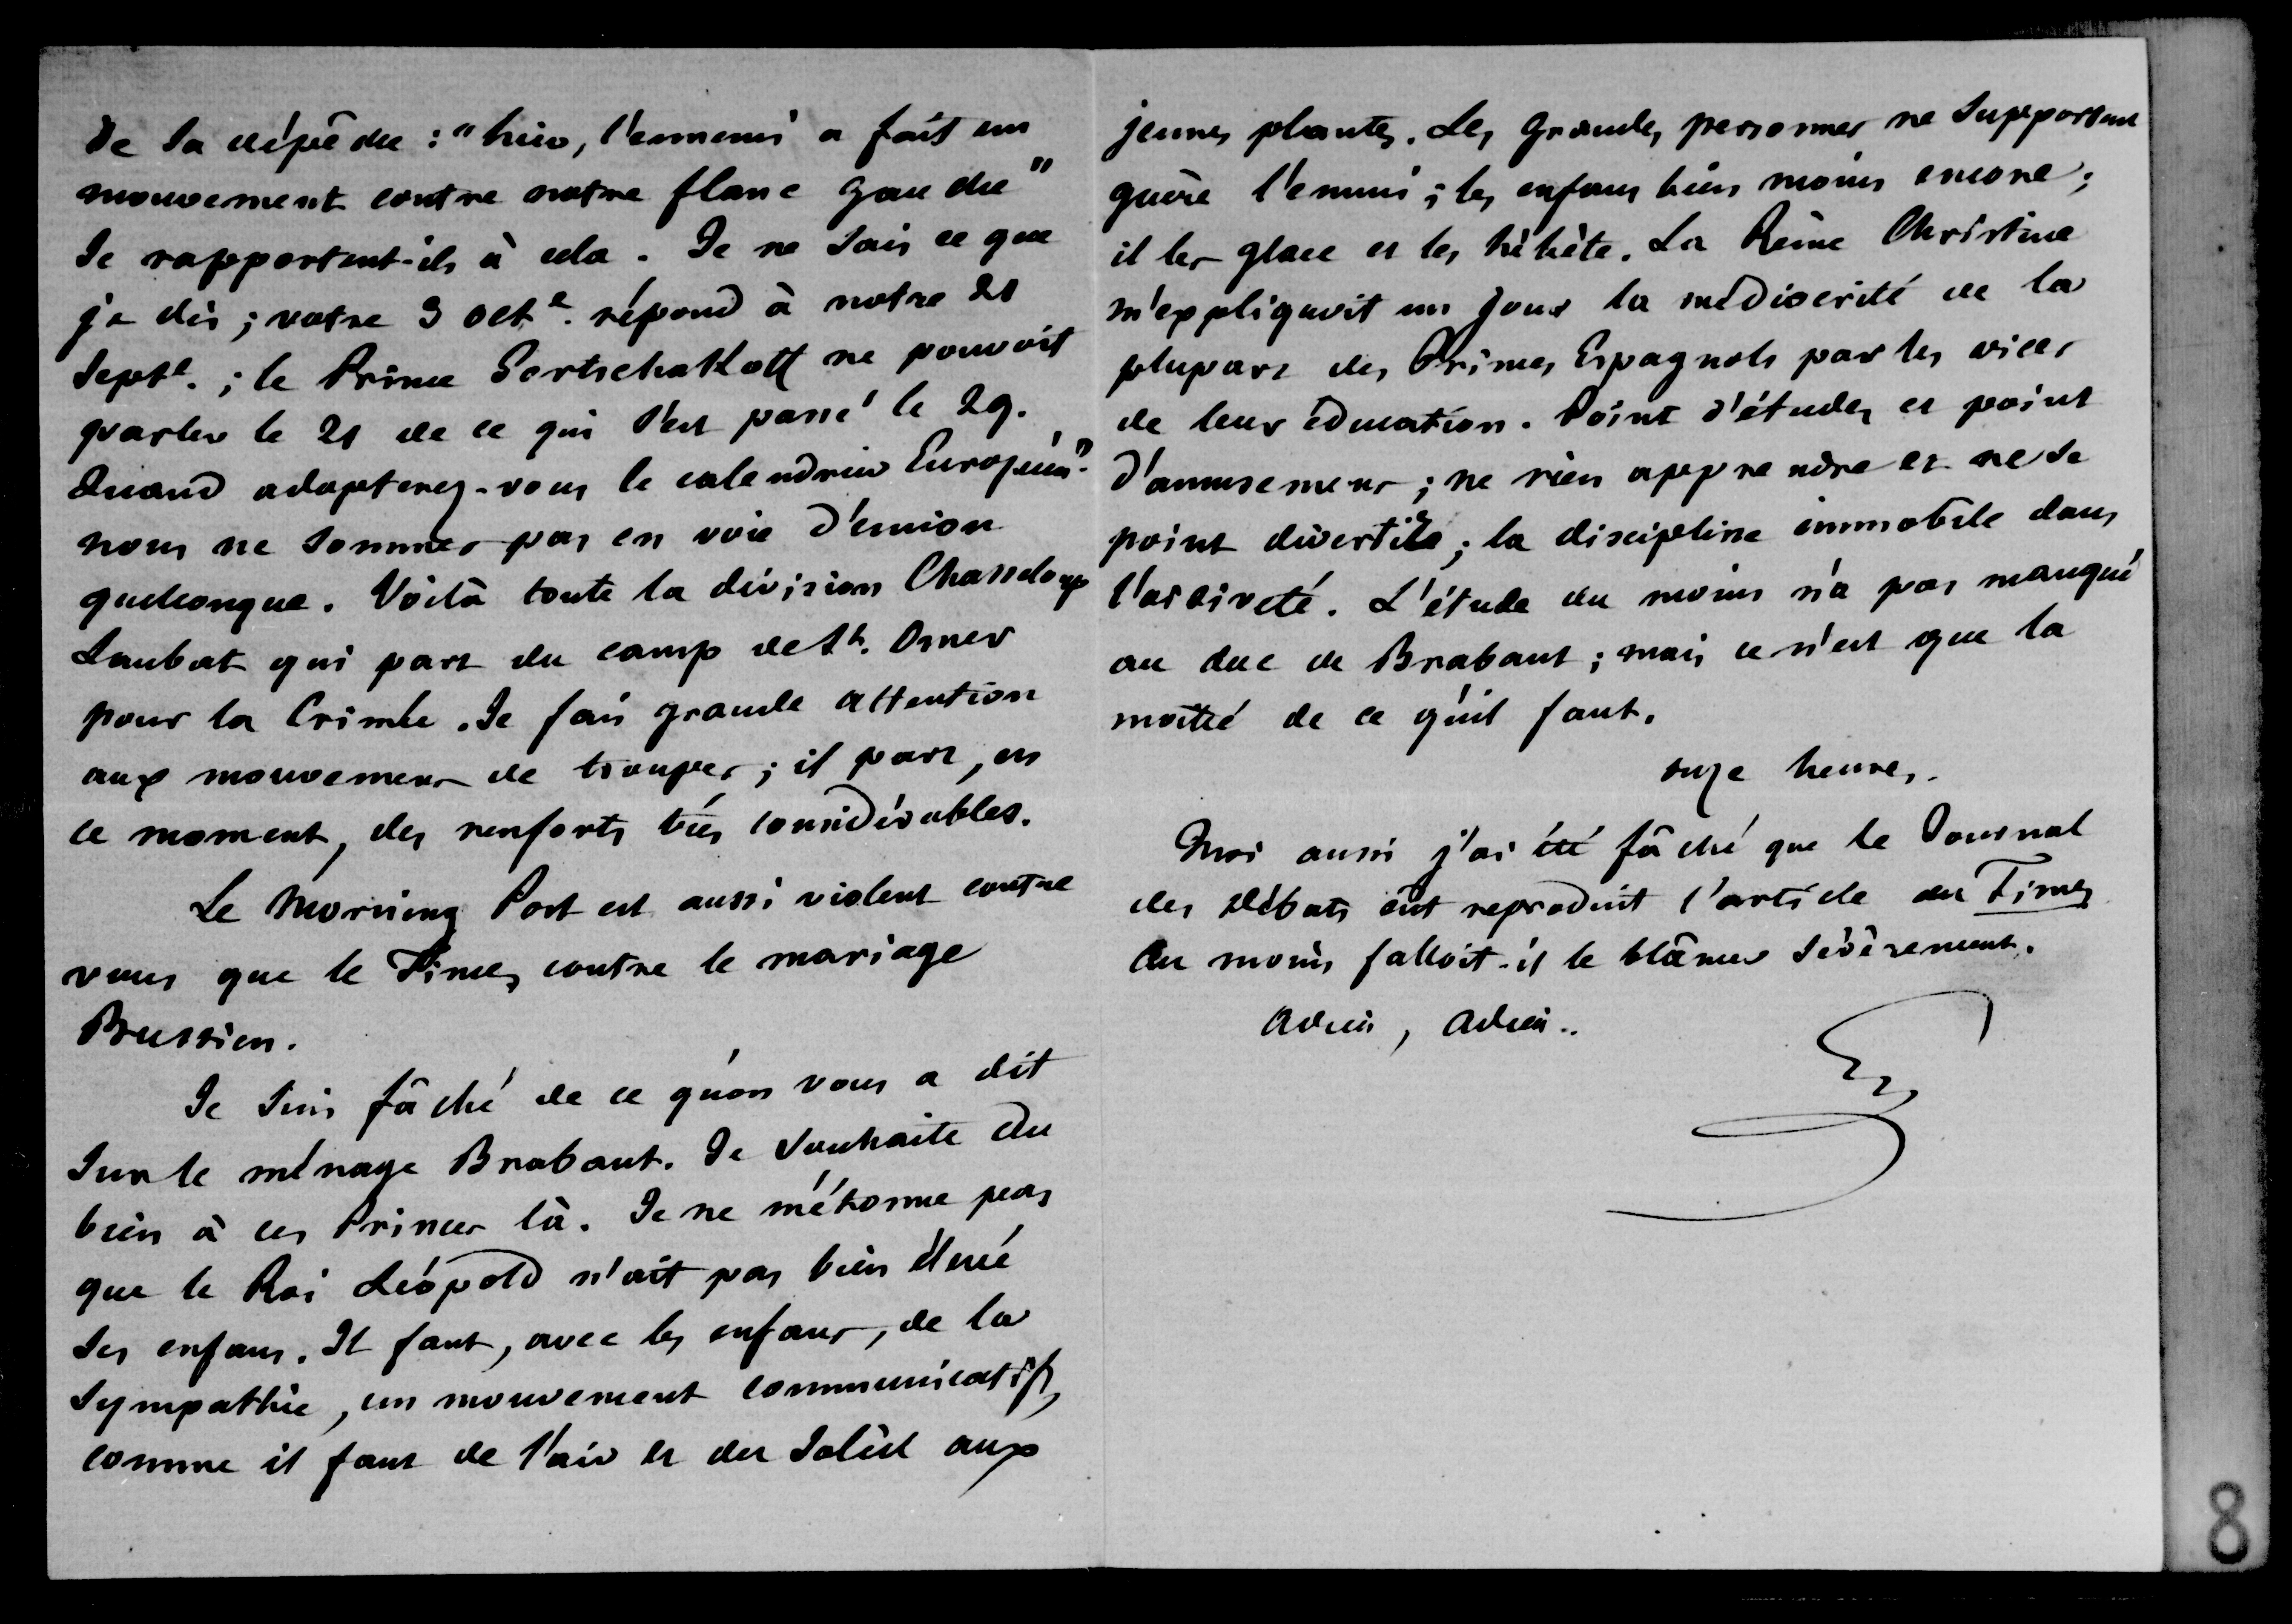 de sa dépêche : "hier, l'ennemi a fait un
mouvement contre notre flanc gauche"
se rapportent-ils à cela. Je ne sais ce que
je dis ; votre 3 octe. répond à notre 21
septe. ; le Prince Gortschakoff ne pouvoit
parler le 21 de ce qui s'est passé le 29.
Quand adopterez-vous le calendrier Européen".
nous ne sommes pas en voie d'union
quelconque. Voilà toute la division Chasseloup
Laubat qui part du camp de St. Omer
pour la Crimée. Je fais grande attention
aux mouvemens de troupes ; il part, en
ce moment, des renforts très considérables.
Le Morning Post est aussi violent contre
vous que le Times contre le mariage
Prussien.
Je suis fâché de ce qu'on vous a dit
sur le ménage Brabant. Je souhaite du
bien à ces Princes là. Je ne m'étonne pas
que le Roi Léopold n'ait pas bien élevé
ses enfans. Il faut, avec les enfans, de la
sympathie, un mouvement communicatif,
comme il faut de l'air et du soleil aux
jeunes plantes. Les grandes personnes ne supportent
guère l'ennui ; les enfans bien moins encore ;
il les glace et les hébète. La Reine Christine
m'expliquoit un jour la médiocrité de la
plupart des Princes Espagnols par les vices
de leur éducation. Point d'études et point
d'amusemens ; ne rien apprendre et ne se
point divertir ; la discipline immobile dans
l'oisiveté. L'étude du moins n'a pas manqué
au duc de Brabant ; mais ce n'est que la
moitié de ce qu'il faut.
onze heures.
Moi aussi j'ai été fâché que le Journal
des Débats eût reproduit l'article du Times
Au moins falloit-il le blâmer sévèrement.
Adieu, Adieu..
8